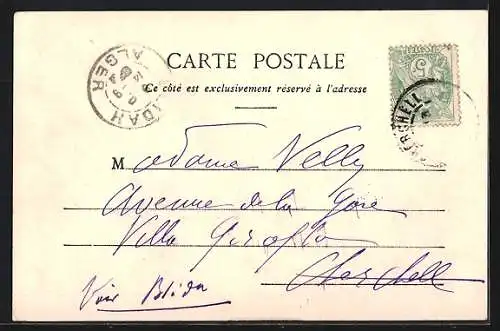 CARTE POSTALE
Ce côté est exclusivement réservé à l'adresse
ALGER
CHERCHELL
Madame Velly
Avenue de la Gare
Villa
Cherchell
Voir Blida